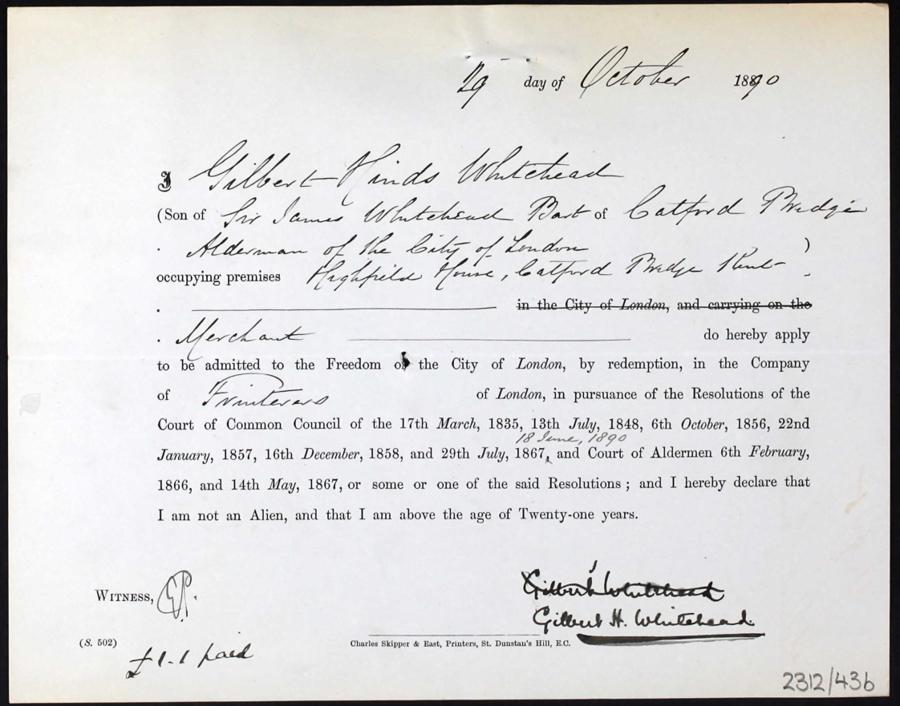 29 day of October 1890
I Gilbert Hinds Whitehead
(Son of Sir James Whitehead Bart of Catford Bridge
Alderman of the City of London )
occupying premises Highfield House, Catford Bridge Kent
in the City of London, and carrying on the
Merchant do hereby apply
to be admitted to the Freedom of the City of London, by redemption, in the Company
of Fruiterers of London, in pursuance of the Resolutions of the
Court of Common Council of the 17th March, 1835, 13th July, 1848, 6th October, 1856, 22nd
18 June, 1890
January, 1857, 16th December, 1858, and 29th July, 1867, and Court of Aldermen 6th February,
1866, and 14th May, 1867, or some or one of the said Resolutions; and I hereby declare that
I am not an Alien, and that I am above the age of Twenty-one years.
Gilbert Whitehead
WITNESS,
Gilbert H. Whitehead
(S. 502)
Charles Skipper & East, Printers, St. Dunstan's Hill, E.C.
£1.1 paid
2312/436